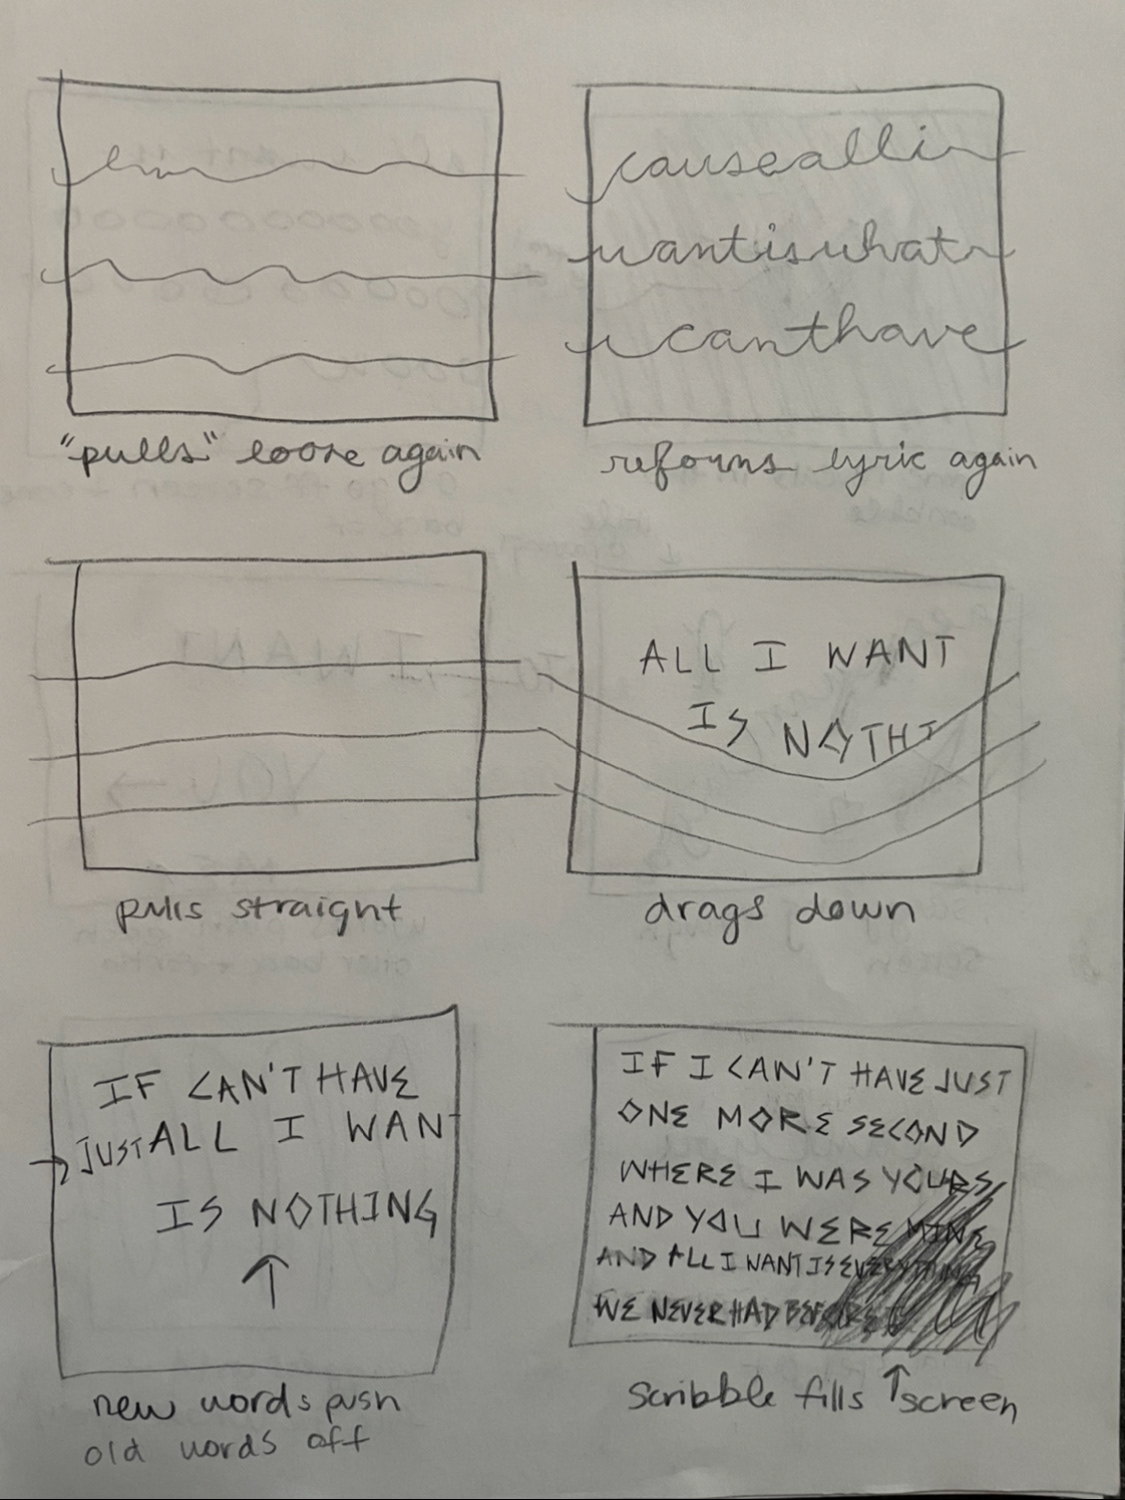 causealli
wantiswhat
icanthave
"pulls" loose again
reforms lyric again
ALL I WANT
IS NOTHI
pulls straight
drags down
IF CAN'T HAVE
JUST ALL I WANT
IS NOTHING
new words push
old words off
IF I CAN'T HAVE JUST
ONE MORE SECOND
WHERE I WAS YOURS
AND YOU WERE MINE
AND ALL I WANT IS EVERYTHING
WE NEVER HAD BEFORE
scribble fills screen